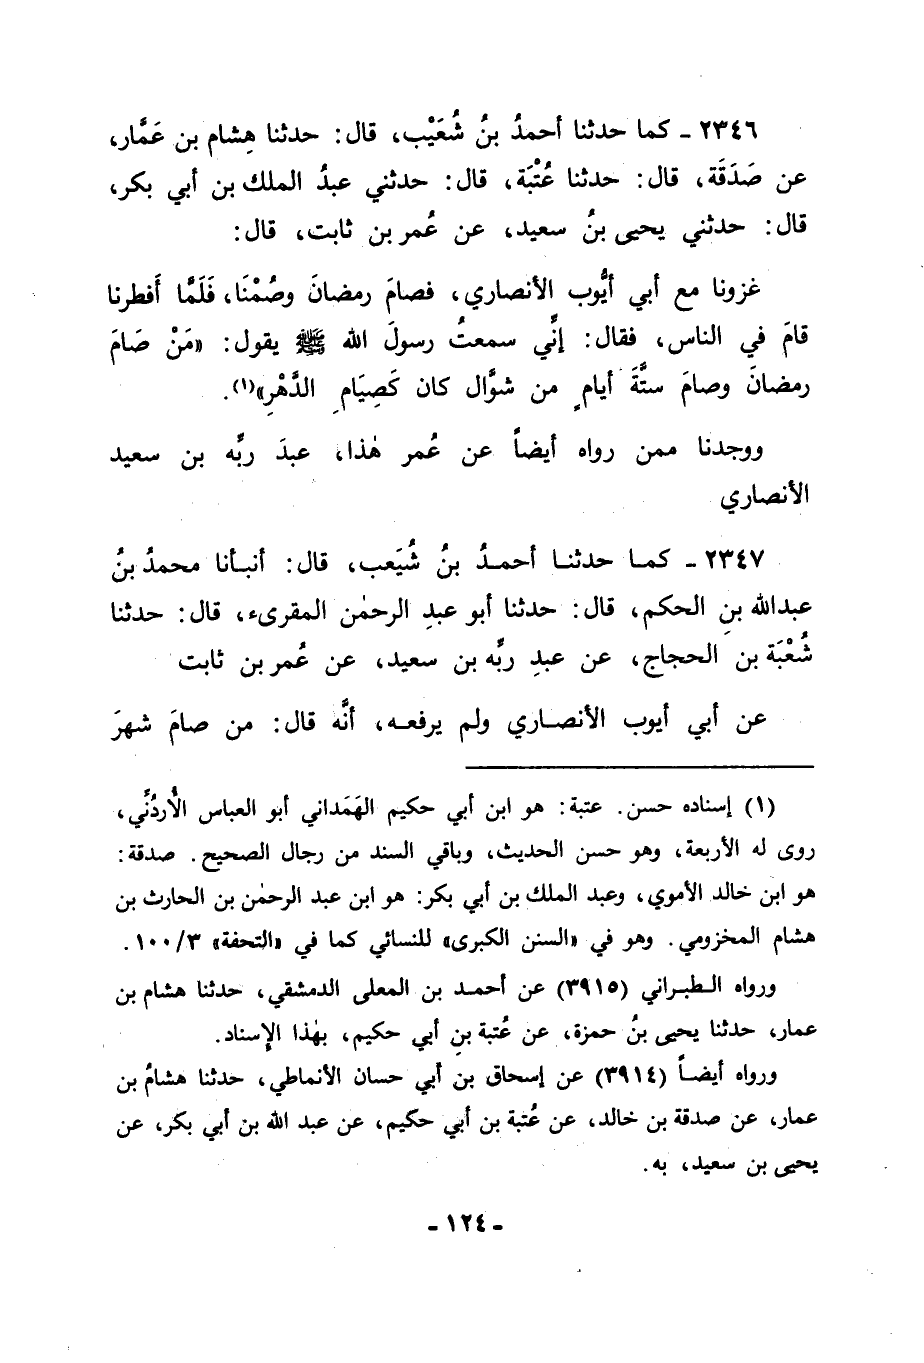 ٢٣٤٦ ـ كما حدثنا أحمدُ بنُ شُعَيْب، قال: حدثنا هِشام بن عَمَّار،
عن صَدَقَة، قال: حدثنا عُتْبَة، قال: حدثني عبدُ الملك بن أبي بكر،
قال: حدثني يحيى بنُ سعيد، عن عُمر بن ثابت، قال:
غزونا مع أبي أيُّوب الأنصاري، فصامَ رمضانَ وصُمْنَا، فَلَمَّا أَفطرنا
قامَ في الناس، فقال: إنِّي سمعتُ رسولَ الله ﷺ يقول: «مَنْ صَامَ
رمضانَ وصامَ ستَّةَ أيامٍ من شوَّال كان كَصِيَامِ الدَّهْرِ»(١).
ووجدنا ممن رواه أيضاً عن عُمر هٰذا، عبدَ ربِّه بن سعيد
الأنصاري
٢٣٤٧ ـ كما حدثنا أحمدُ بنُ شُيَعب، قال: أنبأنا محمدُ بنُ
عبدالله بنِ الحكم، قال: حدثنا أبو عبدِ الرحمٰن المقرىء، قال: حدثنا
شُعْبَة بن الحجاج، عن عبدِ ربِّه بن سعيد، عن عُمر بن ثابت
عن أبي أيوب الأنصاري ولم يرفعه، أنَّه قال: من صامَ شهرَ
(١) إسناده حسن. عتبة: هو ابن أبي حكيم الهَمَداني أبو العباس الأُردُنِّي،
روى له الأربعة، وهو حسن الحديث، وباقي السند من رجال الصحيح. صدقة:
هو ابن خالد الأموي، وعبد الملك بن أبي بكر: هو ابن عبد الرحمٰن بن الحارث بن
هشام المخزومي. وهو في «السنن الكبرى» للنسائي كما في «التحفة» ١٠٠/٣.
ورواه الطبراني (٣٩١٥) عن أحمد بن المعلى الدمشقي، حدثنا هشام بن
عمار، حدثنا يحيى بنُ حمزة، عن عُتبة بنِ أبي حكيم، بهٰذا الإسناد.
ورواه أيضاً (٣٩١٤) عن إسحاق بن أبي حسان الأنماطي، حدثنا هشامُ بن
عمار، عن صدقة بن خالد، عن عُتبة بن أبي حكيم، عن عبد الله بن أبي بكر، عن
يحيى بن سعيد، به.
ـ ١٢٤ ـ